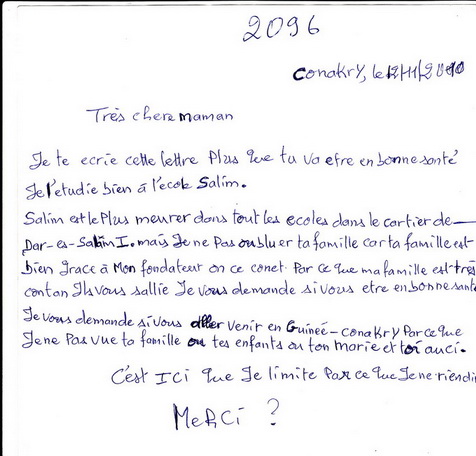 2096
Conakry, le 12/11/2010
Très chere maman
Je te ecrie cette lettre Plus que tu va etre en bonne santé
Je l'etudie bien à l'ecole Salim.
Salim est le Plus meurer dans tout les ecoles dans le cartier de
Dar-es-Salam I. mais Je ne Pas oubluer ta famille car ta famille est
bien Grace à Mon fondateur on ce conet. Par ce que ma famille est très
contan Ils vous sallie Je vous demande si vous etre en bonne santé
Je vous demande si vous aller venir en Guineé-conakry Par ce que
Je ne Pas vue ta famille ou tes enfants ou ton marie et toi auci.
C'est ICi que Je limite Par ce que Je ne rien di
MeRCi ?